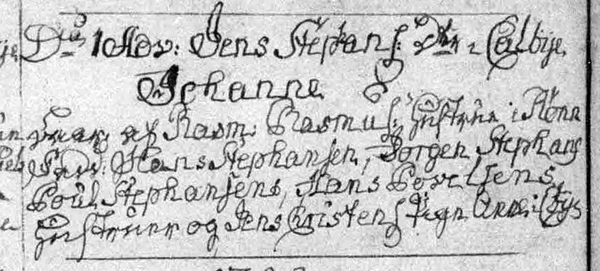 Dn: 1 Adv: Jens Stephans: Dtr i Calbye
Johanne
baar: af Rasm: Rasmus: Hustrue i Rönn
Fadd: Hans Stephansen, Jörgen Stephans
Poül Stephansens, Hans Povelsens
Hustruer og Jens Cristens: Pige Ane: i